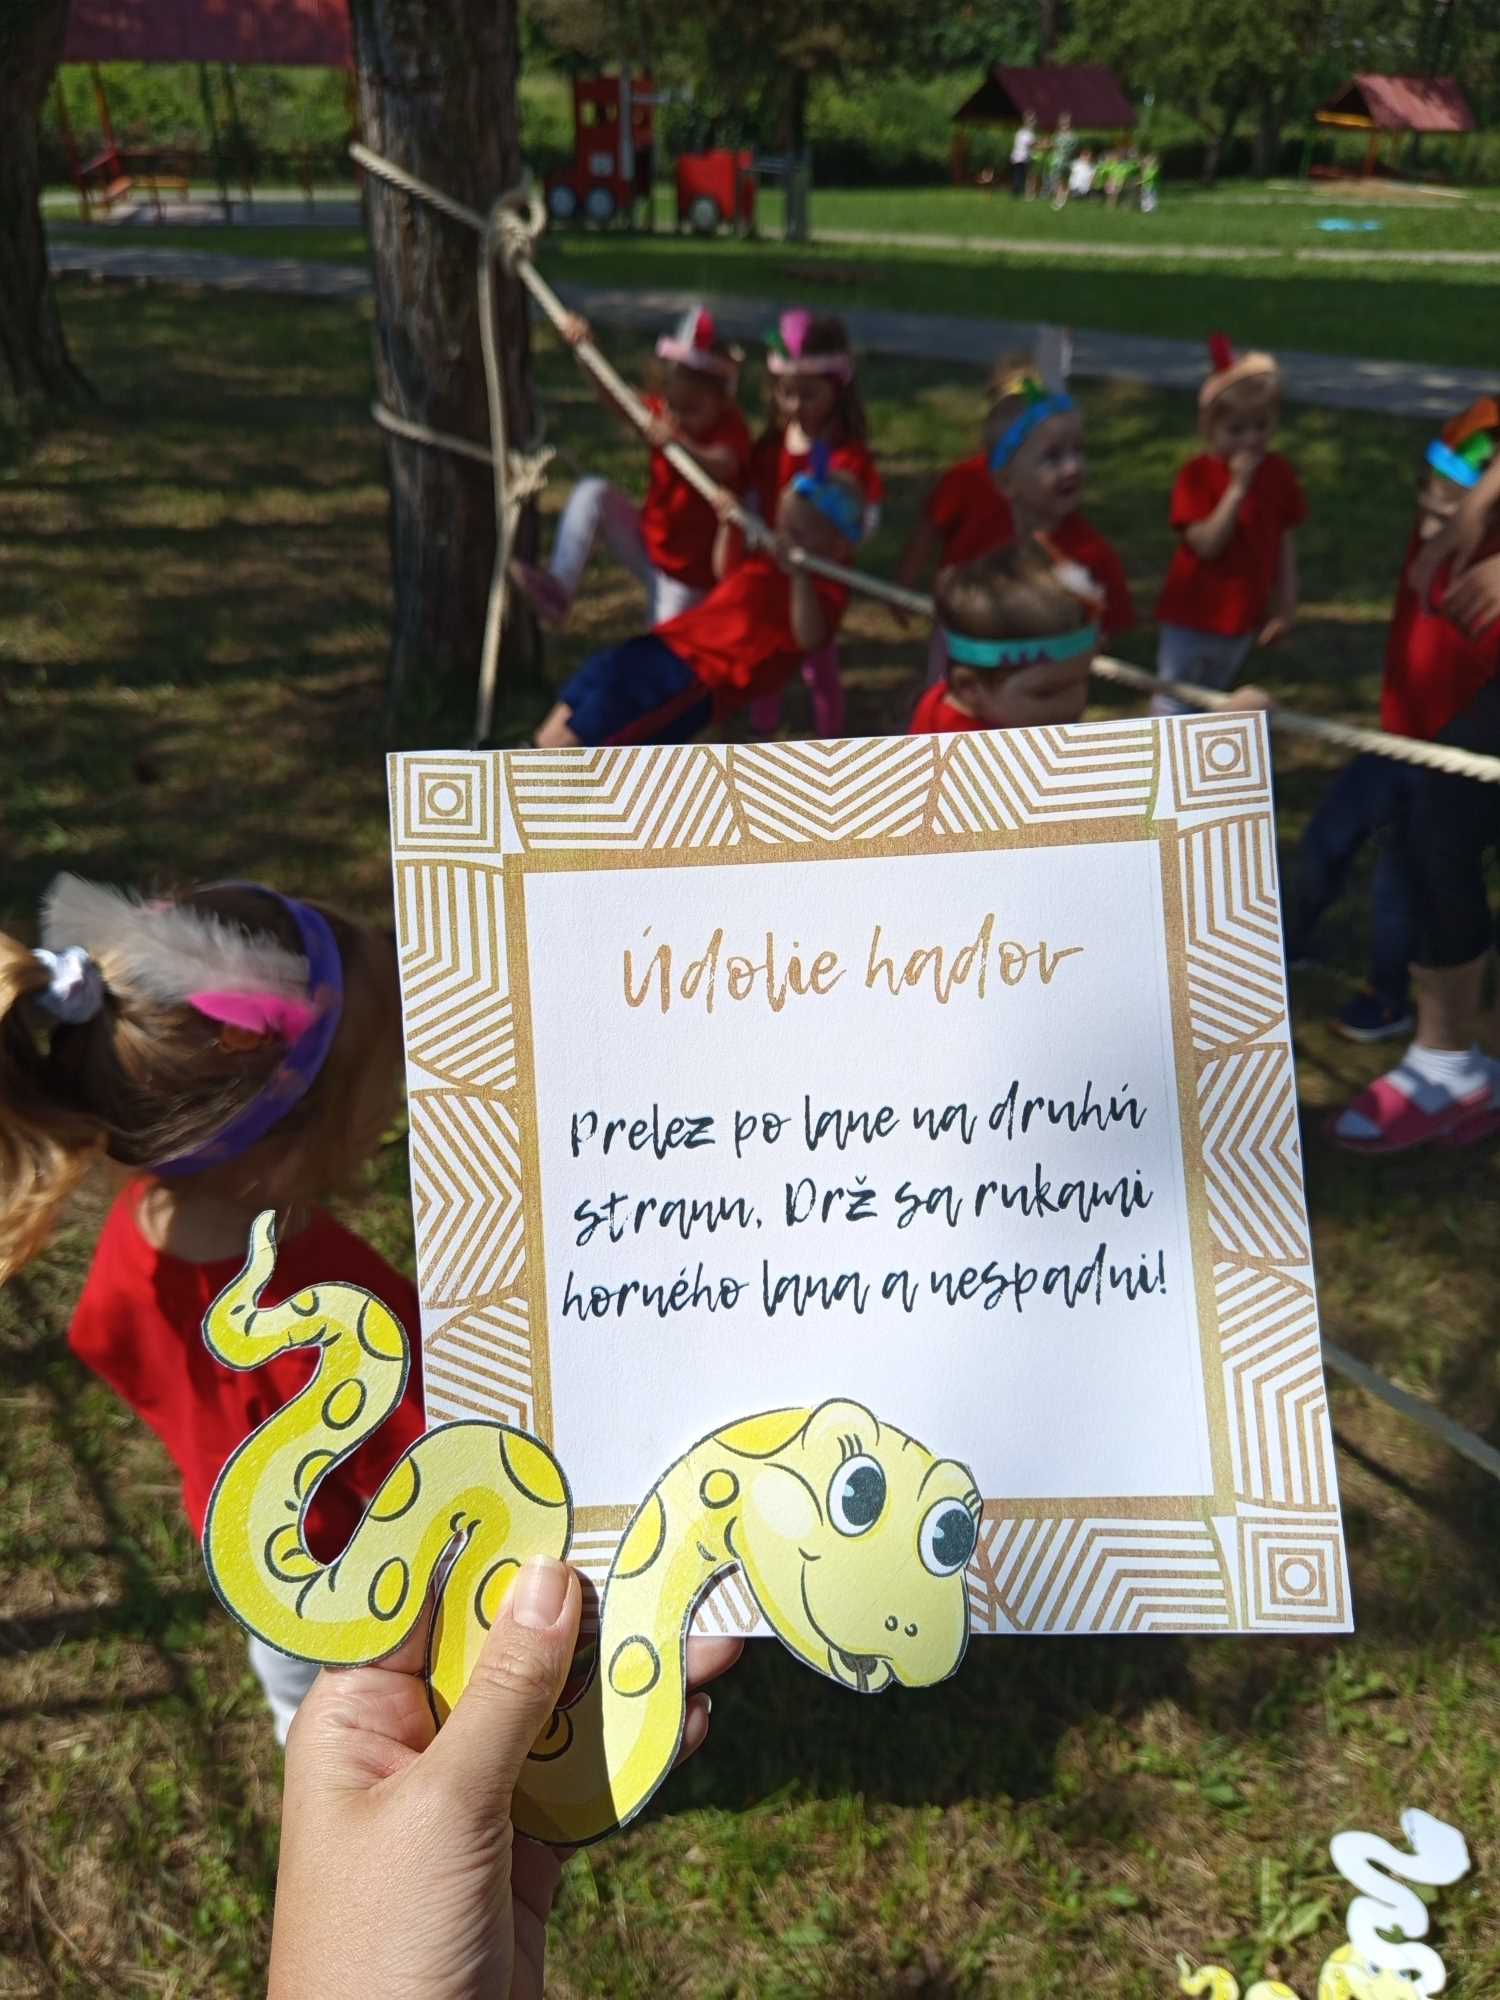 Údolie hadov
Prelez po lane na druhú
stranu. Drž sa rukami
horného lana a nespadni!